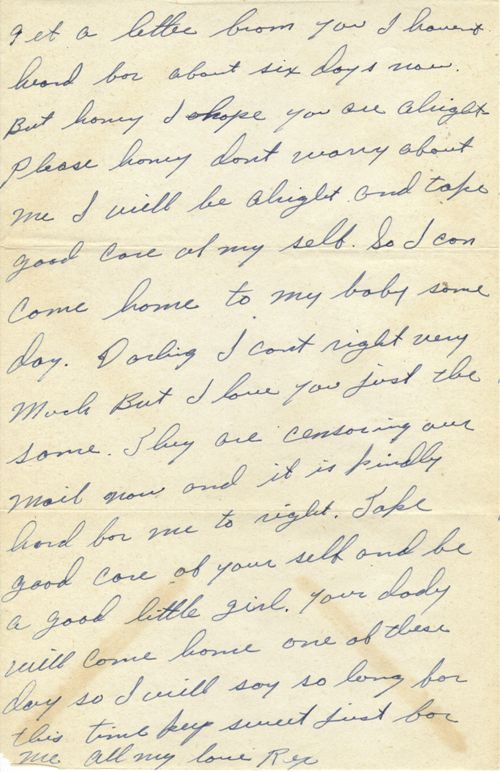 get a letter from you I havent
heard for about six days now.
But honey I hope you are alright
Please honey dont worry about
me I will be alright and take
good care of my self. So I can
come home to my baby some
day. Darling I cant right very
much But I love you just the
same. They are censoring our
mail now and it is kindly
hard for me to right. Take
good care of your self and be
a good little girl. your dady
will come home one of these
day so I will say so long for
this time kep sweet just for
me all my love Rex